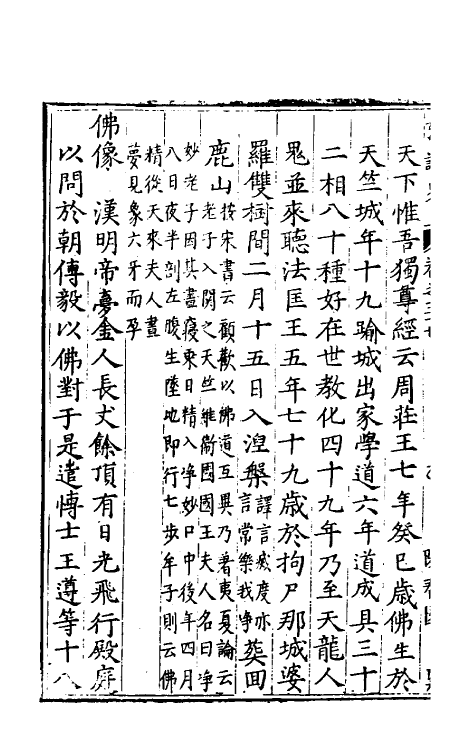 天下惟吾獨尊經云周莊王七年癸巳歲佛生於
天竺城年十九踰城出家學道六年道成具三十
二相八十種好在世教化四十九年乃至天龍人
鬼並來聽法匡王五年七十九歲於拘尸那城婆
羅雙樹間二月十五日入湼槃譯言滅度亦言常樂我淨葬回
鹿山按宋書云顧歡以佛道互異乃著夷夏論云
老子入關之天竺維衛國國王夫人名曰淨
妙老子因其晝寢乘日精入淨妙口中後年四月
八日夜半剖左腹生墮地即行七步牟子則云佛
精從天來夫人晝
夢見象六牙而孕
佛像　漢明帝夢金人長丈餘頂有日光飛行殿庭
以問於朝傅毅以佛對于是遣愽士王遵等十八